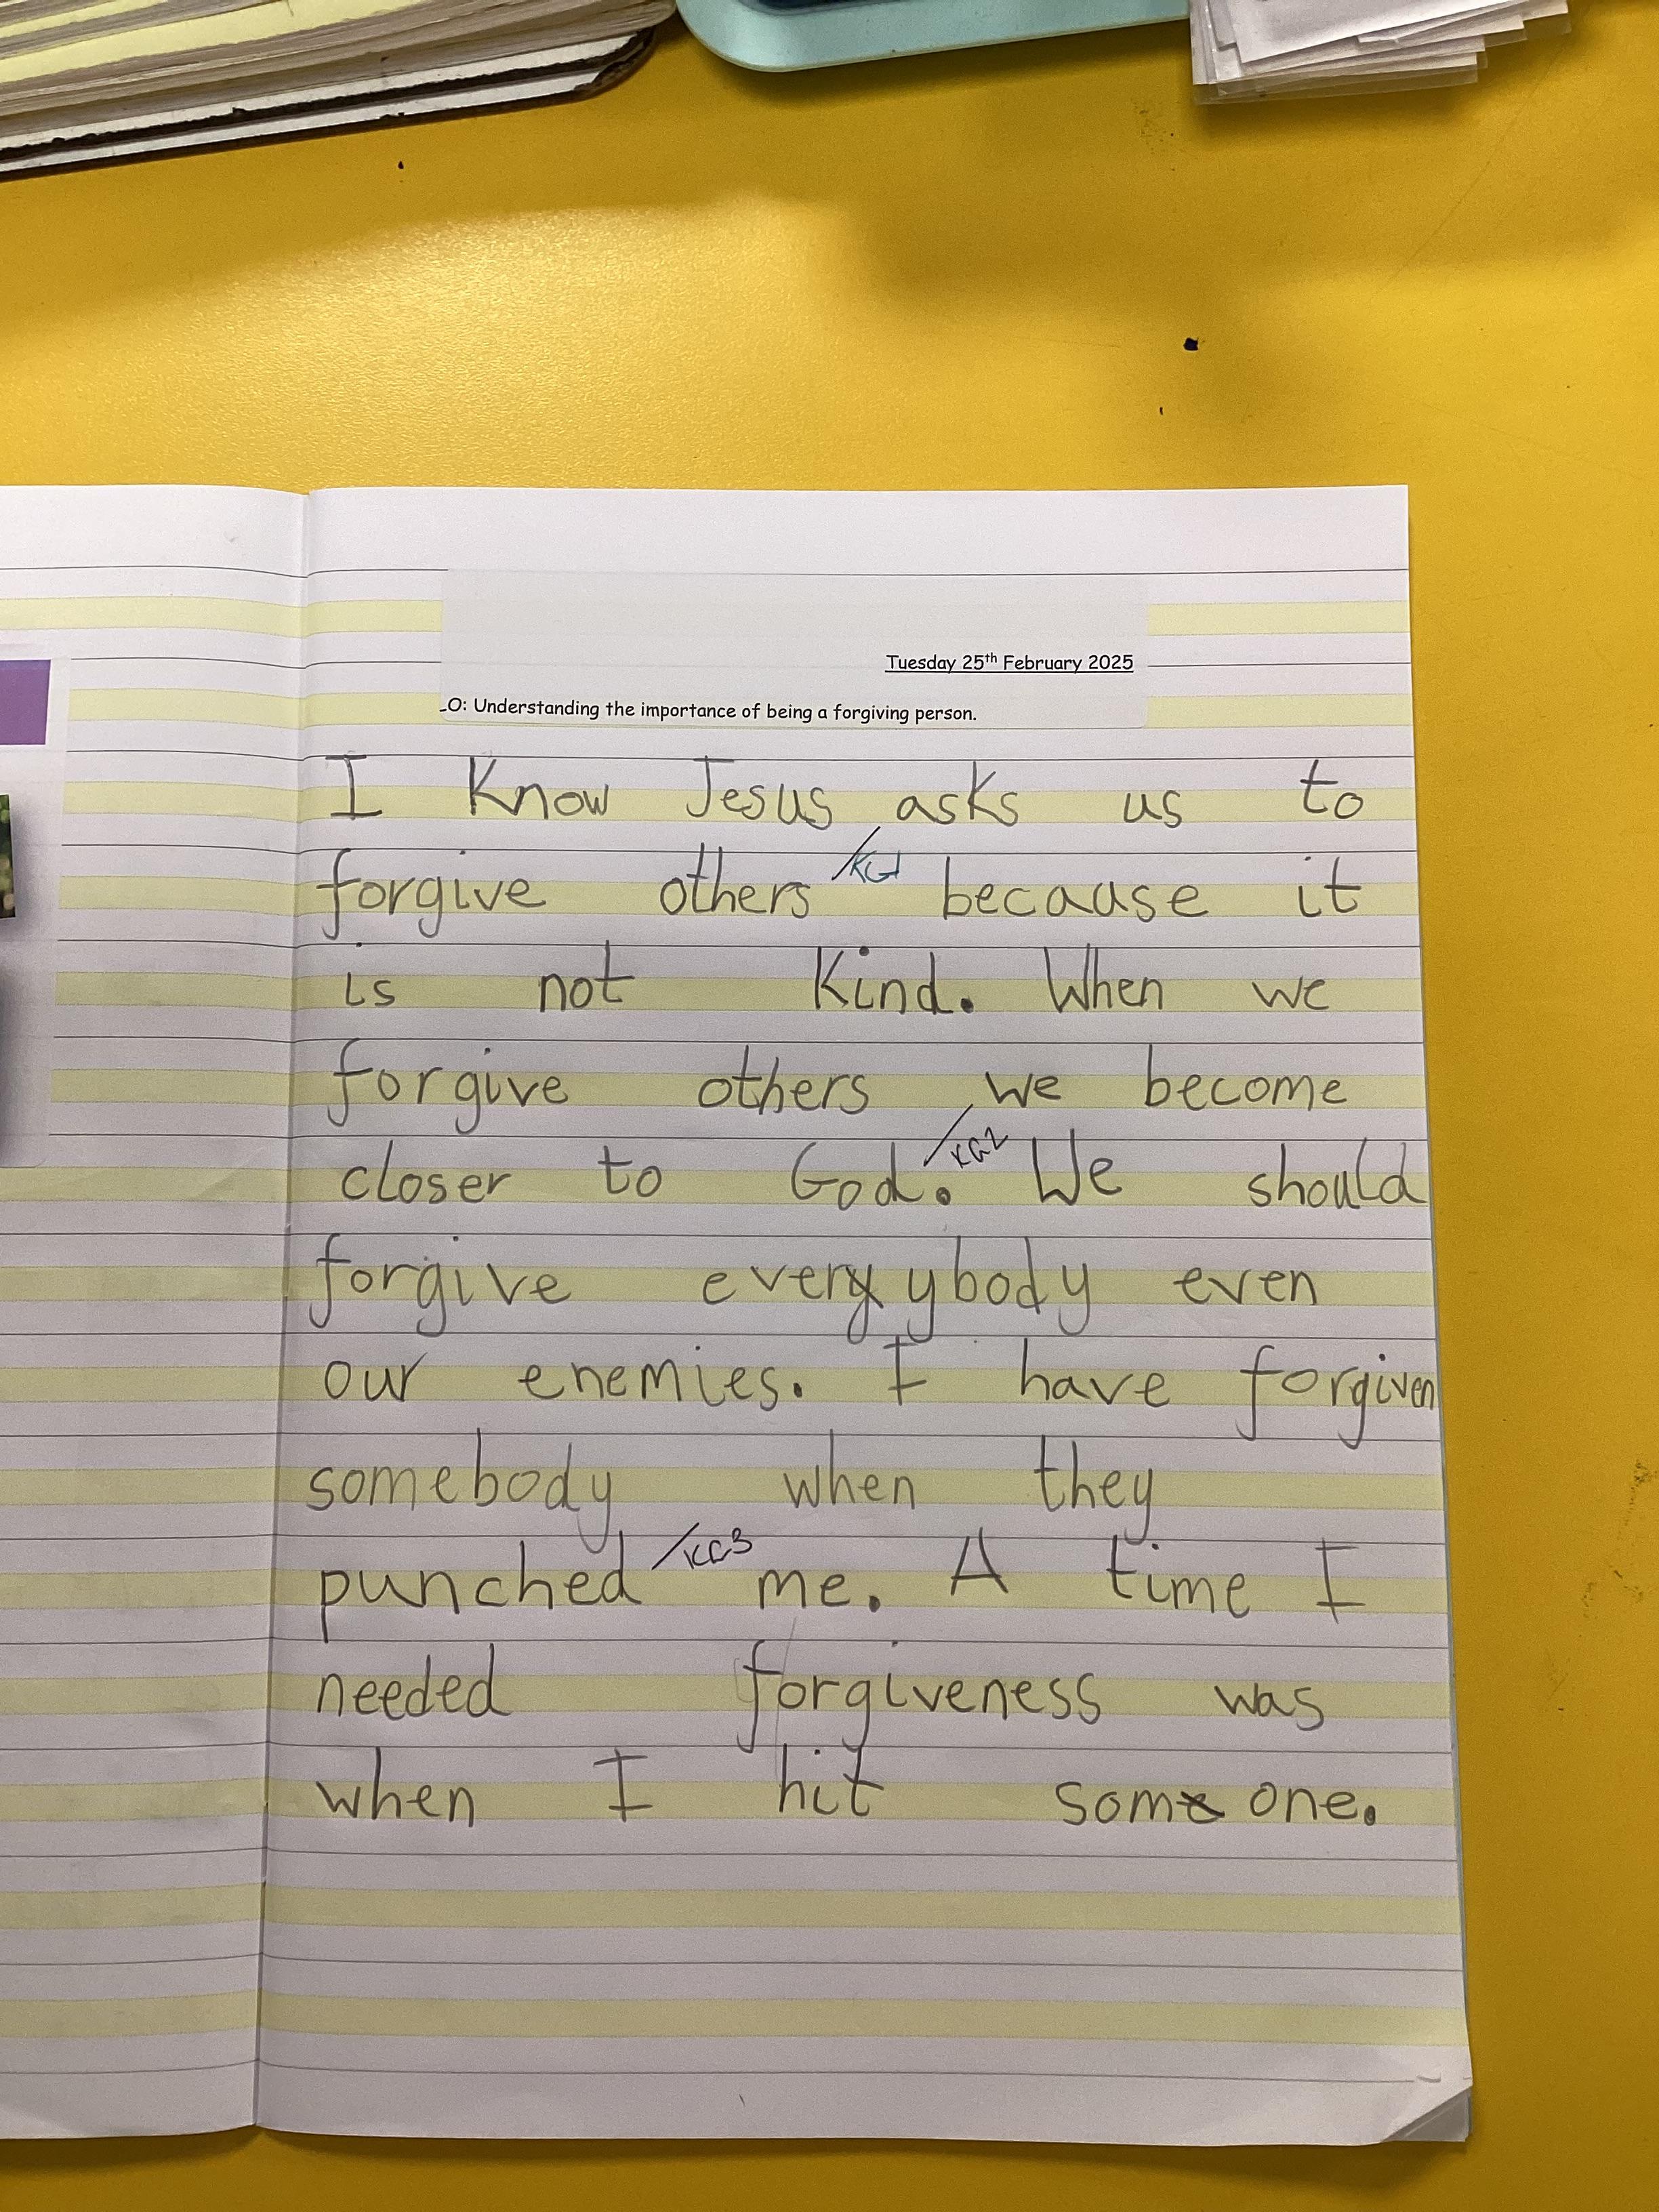 Tuesday 25th February 2025
LO: Understanding the importance of being a forgiving person.
I Know Jesus asks us to
forgive others /KG1 because it
is not Kind. When we
forgive others we become
closer to God. /KG2 We should
forgive everyybody even
our enemies. I have forgiven
somebody when they
punched /KG3 me. A time I
needed forgiveness was
when I hit some one.